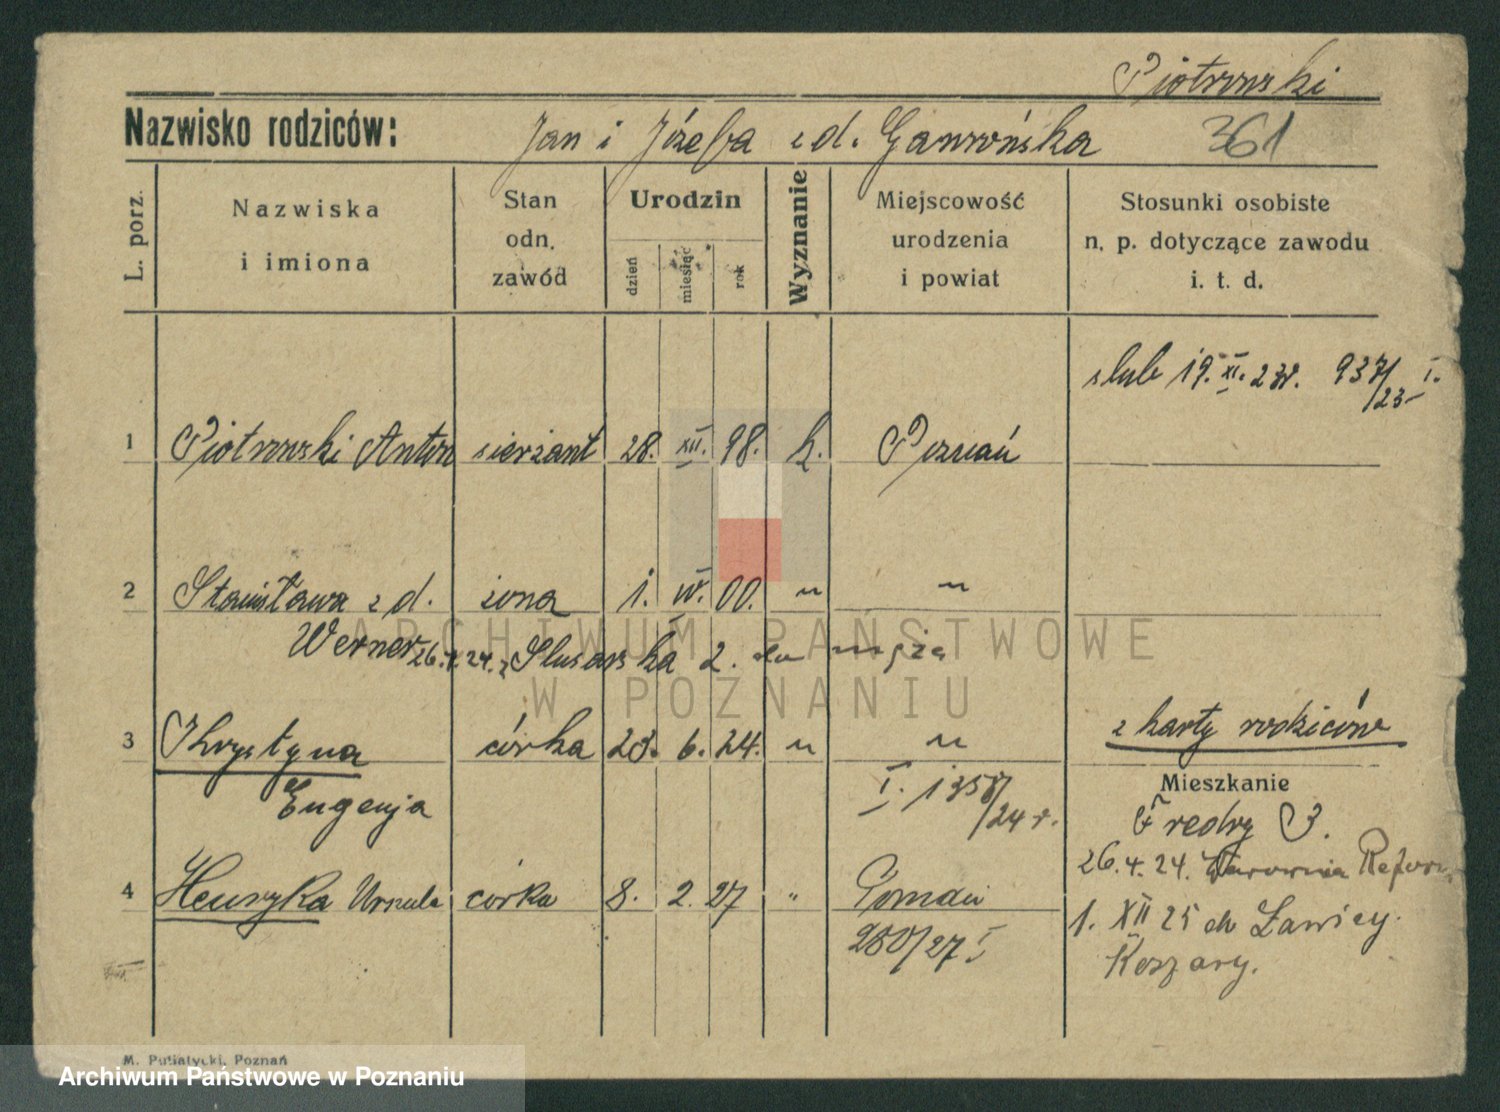 Piotrowski
Nazwisko rodziców: Jan i Józefa z d. Gawrońska 361
L. porz.
Nazwiska
i imiona
Stan
odn.
zawód
Urodzin
dzień
miesiąc
rok
Wyznanie
Miejscowość
urodzenia
i powiat
Stosunki osobiste
n. p. dotyczące zawodu
i. t. d.
ślub 19. XI. 23r. 937/23 I.
1 Piotrowski Anton sierżant 28. XII. 98. k. Poznań
2 Stanisława z d. żona 1. IV. 00. " "
Werner 26.4.24. z Ślusarska 2. do męża
ARCHIWUM PAŃSTWOWE
W POZNANIU
z karty rodziców
3 Khrystyna córka 23. 6. 24. " "
Mieszkanie
Eugenja I. 1358/24 r.
Fredry 3.
26.4.24. Warownia
4 Henryka Urszula córka 8. 2. 27 " Poznań
1. XII 25 do Ławicy
280/27 I
Koszary.
M. Putiatycki, Poznań
Archiwum Państwowe w Poznaniu